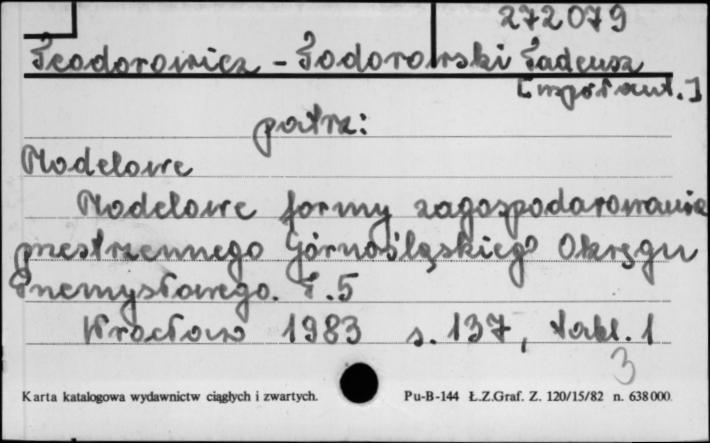 272079
Teodorowicz - Todorowski Tadeusz
[współaut.]
patrz:
Modelowe
Modelowe formy zagospodarowania
przestrzennego Górnośląskiego Okręgu
Przemysłowego. T.5
Wrocław 1983 s. 137, tabl. 1
3
Karta katalogowa wydawnictw ciągłych i zwartych. Pu-B-144 Ł.Z.Graf. Z. 120/15/82 n. 638000.